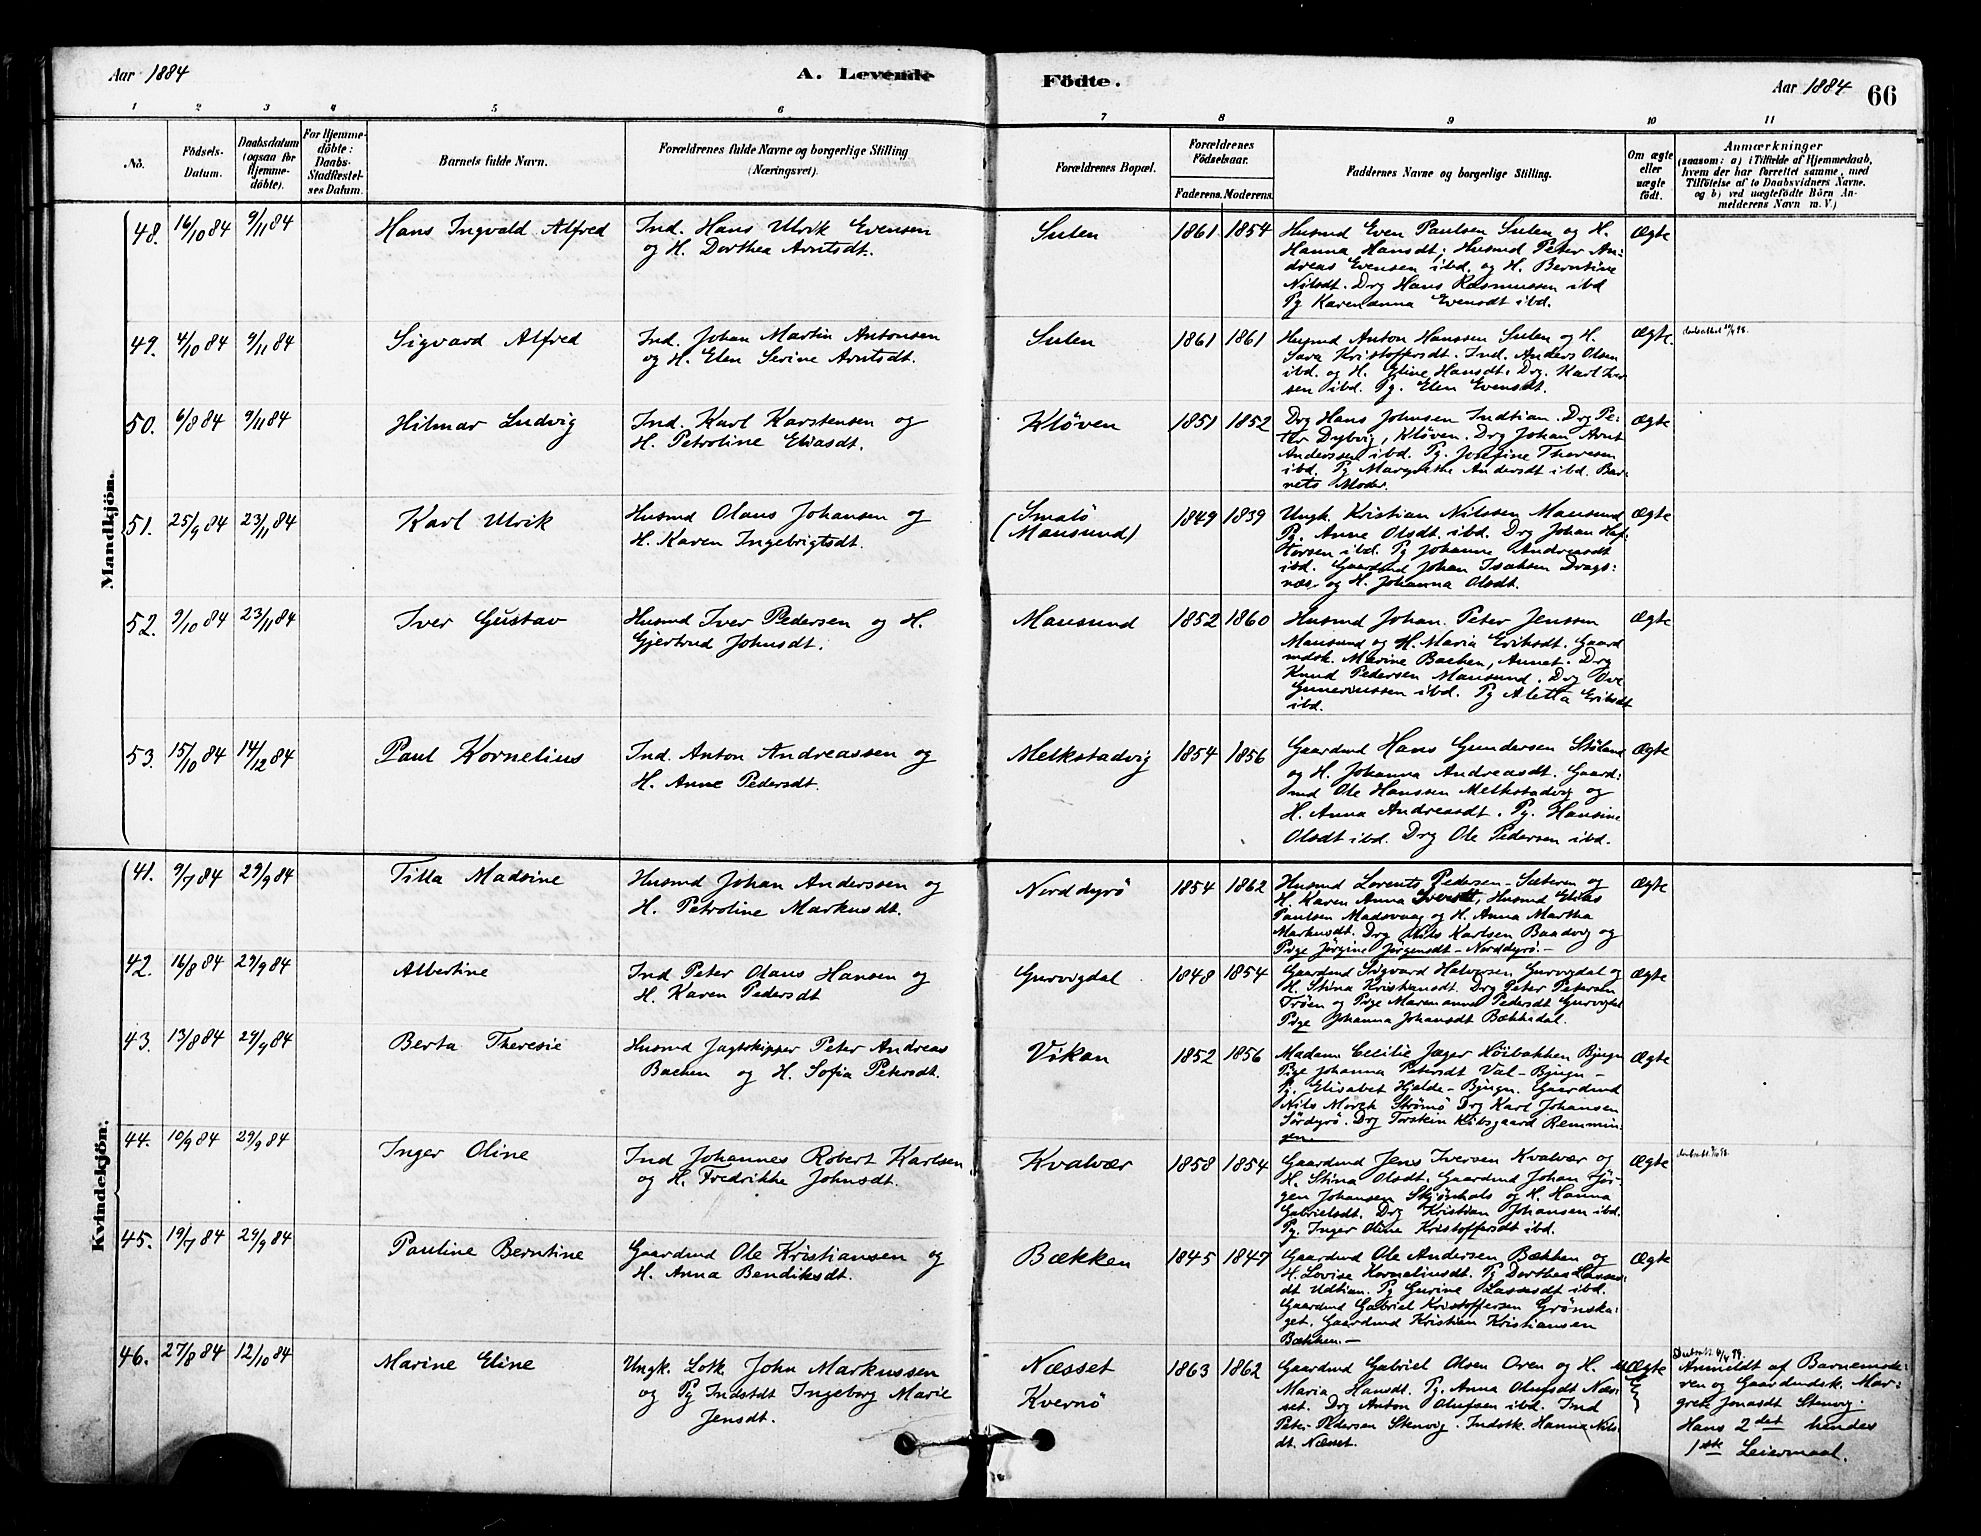 Aar 1884
A. Levende
Födte.
Aar 1884
66
1 2 3 4 5 6 7 8 9 10 11
No.
Födsels-
Datum.
Daabsdatum
(ogsaa for
Hjemme-
döbte).
For Hjemme-
döbte:
Daabs-
Stadfestel-
ses Datum.
Barnets fulde Navn.
Forældrenes fulde Navne og borgerlige Stilling
(Næringsvei).
Forældrenes Bopæl.
Forældrenes
Födselsaar.
Faderens. Moderens.
Faddernes Navne og borgerlige Stilling.
Om ægte
eller
uægte
födt.
Anmærkninger
(saasom: a) i Tilfælde af Hjemmedaab,
hvem der har forrettet samme, med
Tilföielse af to Daabsvidners Navne,
og b) ved uægtefödte Börn An-
melderens Navn m. V.)
Mandkjön.
48. 16/10 84 9/11 84
Hans Ingvald Alfred
Ind. Hans Ulrik Evensen
og H. Dorthea Arntsdt.
Sulen
1861 1854
Husmd Even Paulsen Sulen og H.
Hanna Hansdt; Husmd Peter An-
dreas Evensen ibd. og H. Berntine
Nilsdt. Drg Hans Rasmussen ibd
Pg Karenanna Evensdt ibd.
Ægte
49. 4/10 84 9/11 84
Sigvard Alfred
Ind. Johan Martin Antonsen
og H. Elen Serine Arntsdt.
Sulen
1861 1861
Husmd Anton Hanssen Sulen og H.
Sara Kristoffersdt. Ind. Anders Olsen
ibd. og H. Eline Hansdt. Drg. Karl Iver
sen ibd. Pg. Elen Evensdt.
Ægte.
50. 6/8 84 9/11 84
Hilmar Ludvig
Ind. Karl Karstensen og
H. Petroline Eliasdt.
Kløven
1851 1852
Drg Hans Johnsen Indtian. Drg Pe-
ter Dybvig, Kløven. Drg Johan Arnt
Anderssen ibd. Pg. Josefine Theresen
ibd. Pg Margrethe Andersdt ibd. Bar-
nets Moder.
Ægte
51. 25/9 84 23/11 84
Karl Ulrik
Husmd Olaus Johansen og
H. Karen Ingebrigtsdt.
(Smalø
Mausund)
1849 1839
Ungk. Kristian Nilssen Mausund
Pg. Anne Olsdt. ibd. Drg Johan Haf-
torsen ibd. Pg Johanna Andreasdt
ibd. Gaardmd Johan Isaksen Drags-
næs og H. Johanna Olsdt.
Ægte
52. 9/10 84 23/11 84
Iver Gustav
Husmd Iver Pedersen og H.
Gjertrud Johnsdt.
Mausund
1852 1860
Husmd Johan Peter Jenssen
Mausund og H. Maria Eriksdt. Gaard
mdsk. Marine Bachen, Aunet. Drg
Knud Pedersen Mausund. Drg
Gunerinssen ibd. Pg Aletta Eriksdt
ibd.
Ægte
53. 15/10 84 14/12 84
Paul Kornelius
Ind. Anton Andreassen og
H. Anne Pedersdt.
Melkstadvig
1854 1856
Gaardmd Hans Gundersen
og H. Johanna Andreasdt. Gaard-
md Ole Hanssen Melkstadvig og
H. Anna Andreasdt. Pg. Hansine
Olsdt ibd. Drg Ole Pedersen ibd.
Ægte
Kvindekjön.
41. 9/7 84 29/9 84
Tilla Madsine
Husmd Johan Anderssen og
H. Petroline Markusdt.
Norddyrö
1854 1862
Husmd Lorents Pedersen - Sæteren og
H. Karen Anna Iversdt, Husmd Elias
Paulsen Madsvaag og H. Anna Martha
Markusdt. Drg Nils Karlsen Baadvig og
Pige Jørgine Jørgensdt - Norddyrö. -
Ægte
42. 16/8 84 29/9 84
Albertine
Ind Peter Olaus Hansen og
H. Karen Pedersdt
Gurvigdal
1848 1854
Gaardmd Sigvard Halvorsen Gurvigdal og
H. Stina Kristiansdt. Drg Peter Petersen
Trøen og Pige Marenanna Pedersdt Gurvigdal
Pige Johanna Johansdt Bækkadal.
Ægte
43. 13/8 84 29/9 84
Berta Theresie
Husmd Jagtskipper Peter Andreas
Bachen og H. Sofia Petersdt.
Vikan
1852 1856
Madam Cecilie Jæger Höibakken Bjugn
Pige Johanna Petersdt Val - Bjugn -
Pg. Elisabet Hjelde - Bjugn. Gaardmd
Nils Morck Strömö Drg Karl Johansen
Sördyrö. Drg Torskin Kibsgaard Remmin-
gen.
Ægte
44. 10/9 84 29/9 84
Inger Oline
Ind Johannes Robert Karlsen
og H. Fredrikke Johnsdt.
Kvalvær
1858 1854
Gaardmd Jens Iversen Kvalvær og
H. Stina Olsdt. Gaardmd Johan Jør-
gen Johansen Skjønhals og H. Hanna
Gabrielsdt. Drg Kristian Johansen ibd.
Pg. Inger Oline Kristoffersdt ibd.
Ægte
45. 19/7 84 29/9 84
Pauline Berntine
Gaardmd Ole Kristiansen og
H. Anna Bendiksdt.
Bækken
1845 1847
Gaardmd Ole Andersen Bækken og
H. Lovise Korneliusdt. Pg Dorthea Lasses-
dt Udtian. Pg Gurine Lassesdt ibd.
Gaardmd Gabriel Kristoffersen Grönska-
get. Gaardmd Kristian Kristiansen
Bækken. -
Ægte
46. 27/8 84 12/10 84
Marine Eline
Ungk. Lotk John Markussen
og Pg Indstdt Ingeborg Marie
Jensdt.
Næsset
Kvernö
1863 1862
Gaardmd Gabriel Olsen Oren og H.
Maria Hansdt. Pg. Anna Olufsdt Næs-
set. Drg Anton Olufsen ibd. Ind
Peter Pedersen Stenvig. Indstk. Hanna Nils-
dt. Næsset.
uÆgte
Anmeldt af Barnemode-
ren og Gaardmdsk. Mar-
grete Jonasdt Stenvig.
Hans 2det hendes
1ste Leiermaal.